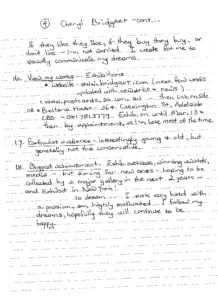 ④ Cheryl Bridgart - cont...
if they like they like, if they buy they buy, or
don't like - I'm not worried. I create art me to
visually communicate my dreams.
16. View my works - Exhibitions
* website www.bridgart.com (next few weeks
updated with new works + news)
www.postcards.sa.com.au - then link on side
* Balance House - 364 Carrington St, Adelaide
then by appointment, as I'm here most of the time.
17. Particular audience - interestingly young & old, but
generally not the conservative.
18. Biggest achievement - Exhib overseas, winning awards,
media - but aiming for new ones - hoping to be
collected by a major gallery in the next 2 years -
and Exhibit in New York!
to dream.... I work very hard with
a passion, am highly motivated. I follow my
dreams, hopefully they will continue to be
happy.